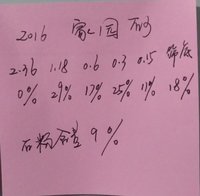 2016 园 石砂
2.36 1.18 0.6 0.3 0.15 筛底
0% 29% 17% 25% 11% 18%
石粉含量 9%